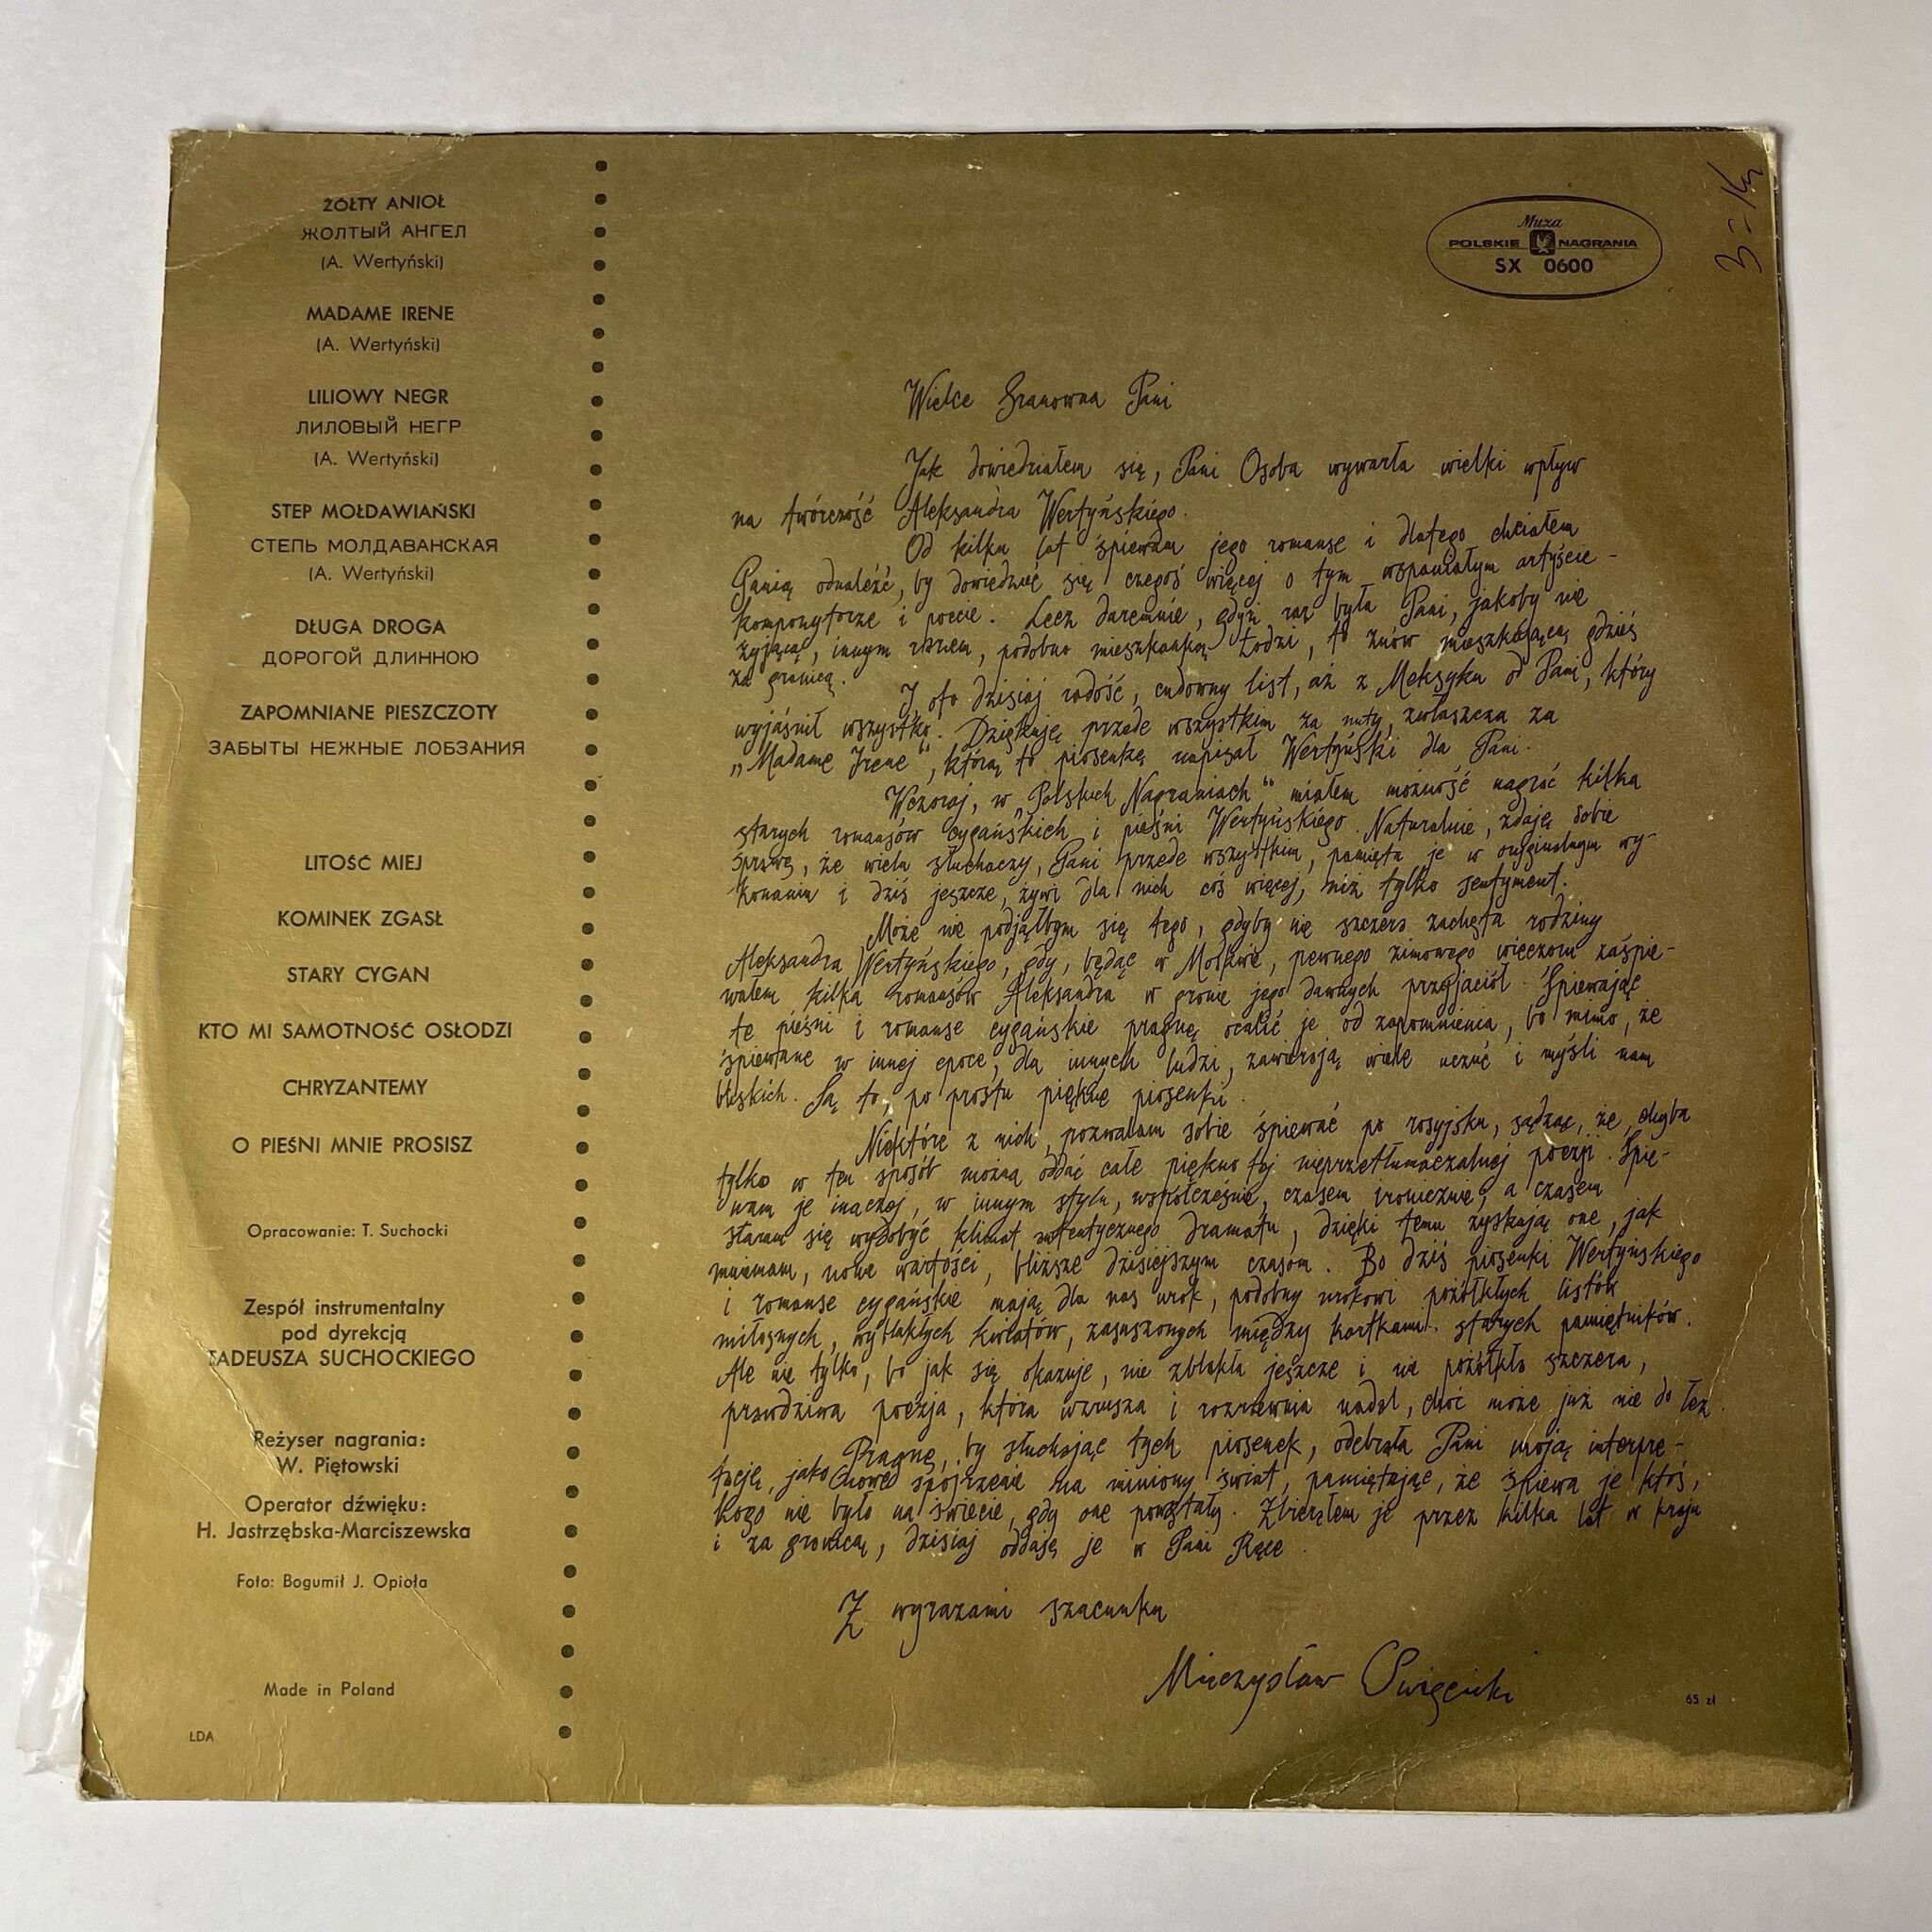 ŻÓŁTY ANIOŁ
ЖОЛТЫЙ АНГЕЛ
(A. Wertyński)
MADAME IRENE
(A. Wertyński)
LILIOWY NEGR
ЛИЛОВЫЙ НЕГР
(A. Wertyński)
STEP MOŁDAWIAŃSKI
СТЕПЬ МОЛДАВАНСКАЯ
(A. Wertyński)
DŁUGA DROGA
ДОРОГОЙ ДЛИННОЮ
ZAPOMNIANE PIESZCZOTY
ЗАБЫТЫ НЕЖНЫЕ ЛОБЗАНИЯ
LITOŚĆ MIEJ
KOMINEK ZGASŁ
STARY CYGAN
KTO MI SAMOTNOŚĆ OSŁODZI
CHRYZANTEMY
O PIEŚNI MNIE PROSISZ
Opracowanie: T. Suchocki
Zespół instrumentalny
pod dyrekcją
TADEUSZA SUCHOCKIEGO
Reżyser nagrania:
W. Piętowski
Operator dźwięku:
H. Jastrzębska-Marciszewska
Foto: Bogumił J. Opioła
Made in Poland
ŁDA
Muza
POLSKIE NAGRANIA
SX 0600
Wielce Szanowna Pani
Jak dowiedziałem się, Pani Osoba wywarła wielki wpływ
na twórczość Aleksandra Wertyńskiego.
Od kilku lat śpiewam jego romanse i dlatego chciałem
Panią odnaleźć, by dowiedzieć się czegoś więcej o tym wspaniałym artyście-
kompozytorze i poecie. Lecz daremnie, gdyż raz była Pani, jakoby nie
żyjącą, innym razem, podobno mieszkanką Łodzi, to znów mieszkającą gdzieś
za granicą.
I oto dzisiaj radość, cudowny list, aż z Meksyku od Pani, który
wyjaśnił wszystko. Dziękuję przede wszystkim za nuty, zwłaszcza za
„Madame Irene", którą to piosenkę napisał Wertyński dla Pani.
Wczoraj, w „Polskich Nagraniach" miałem możność nagrać kilka
starych romansów cygańskich i pieśni Wertyńskiego. Naturalnie, zdaję sobie
sprawę, że wielu słuchaczy, Pani przede wszystkim, pamięta je w oryginalnym wy-
konaniu i dziś jeszcze, żywi dla nich coś więcej, niż tylko sentyment.
Może nie podjąłbym się tego, gdyby nie szczera zachęta rodziny
Aleksandra Wertyńskiego, gdy, będąc w Moskwie, pewnego zimowego wieczoru zaśpie-
wałem kilka romansów Aleksandra w gronie jego dawnych przyjaciół. Śpiewając
te pieśni i romanse cygańskie pragnę ocalić je od zapomnienia, bo mimo, że
śpiewane w innej epoce, dla innych ludzi, zawierają wiele uczuć i myśli nam
bliskich. Są to, po prostu piękne piosenki.
Niektóre z nich, pozwalam sobie śpiewać po rosyjsku, sądząc, że, chyba
tylko w ten sposób można oddać całe piękno tej nieprzetłumaczalnej poezji. Śpie-
wam je inaczej, w innym stylu, współcześnie, czasem ironicznie, a czasem
staram się wydobyć klimat autentycznego dramatu, dzięki temu zyskują one, jak
mniemam, nowe wartości, bliższe dzisiejszym czasom. Bo dziś piosenki Wertyńskiego
i romanse cygańskie mają dla nas urok, podobny urokowi pożółkłych listów
miłosnych, wyblakłych kwiatów, zasuszonych między kartkami starych pamiętników.
Ale nie tylko, bo jak się okazuje, nie zblakła jeszcze i nie pożółkła szczera,
prawdziwa poezja, która wzrusza i rozrzewnia nadal, choć może już nie do łez.
Pragnę, by słuchając tych piosenek, odebrała Pani moją interpre-
tację, jako nowe spojrzenie na miniony świat, pamiętając, że śpiewa je ktoś,
kogo nie było na świecie, gdy one powstały. Zbierałem je przez kilka lat w kraju
i za granicą, dzisiaj oddaję je w Pani Ręce.
Z wyrazami szacunku
Mieczysław Święcicki
65 zł